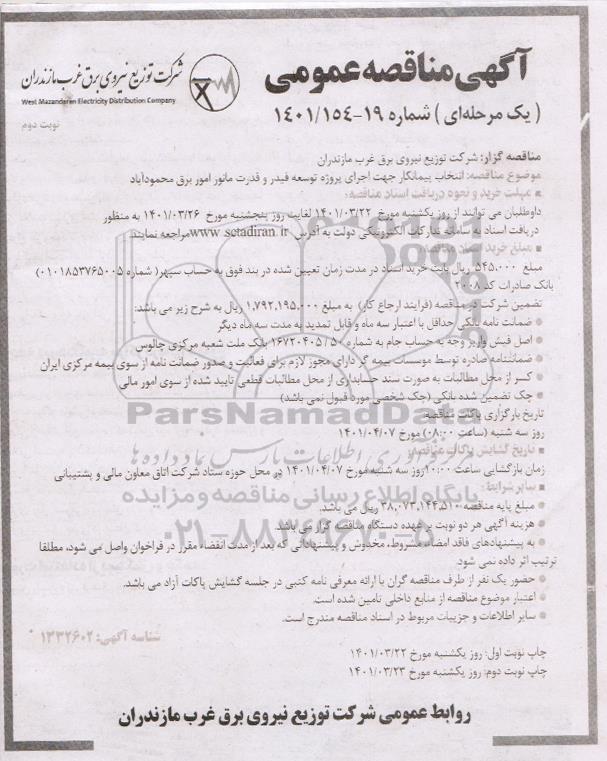 آگهی مناقصه عمومی
شرکت توزیع نیروی برق غرب مازندران
West Mazandaran Electricity Distribution Company
( یک مرحله‌ای ) شماره ۱۹-۱۴۰۱/۱۵۴
نوبت دوم
مناقصه گزار: شرکت توزیع نیروی برق غرب مازندران
موضوع مناقصه: انتخاب پیمانکار جهت اجرای پروژه توسعه فیدر و قدرت مانور امور برق محمودآباد
مهلت خرید و نحوه دریافت اسناد مناقصه:
داوطلبان می توانند از روز یکشنبه مورخ ۱۴۰۱/۰۳/۲۲ لغایت روز پنجشنبه مورخ ۱۴۰۱/۰۳/۲۶ به منظور
دریافت اسناد به سامانه تدارکات الکترونیکی دولت به آدرس www.setadiran.ir مراجعه نمایند.
مبلغ خرید اسناد مناقصه:
مبلغ ۵۴۵.۰۰۰ ریال بابت خرید اسناد در مدت زمان تعیین شده در بند فوق به حساب سپهر( شماره ۰۱۰۱۸۵۳۷۶۵۰۰۵)
بانک صادرات کد ۲۰۰۸
تضمین شرکت در مناقصه (فرایند ارجاع کار) به مبلغ ۱,۷۹۲,۱۹۵,۰۰۰ ریال به شرح زیر می باشد:
● ضمانت نامه بانکی حداقل با اعتبار سه ماه و قابل تمدید به مدت سه ماه دیگر
● اصل فیش واریز وجه به حساب جام به شماره ۱۶۷۲۰۴۰۵/۵۰ بانک ملت شعبه مرکزی چالوس
● ضمانتنامه صادره توسط موسسات بیمه گر دارای مجوز لازم برای فعالیت و صدور ضمانت نامه از سوی بیمه مرکزی ایران
● کسر از محل مطالبات به صورت سند حسابداری از محل مطالبات قطعی تایید شده از سوی امور مالی
● چک تضمین شده بانکی (چک شخصی مورد قبول نمی باشد)
تاریخ بارگزاری پاکات مناقصه:
روز سه شنبه (ساعت ۰۸:۰۰) مورخ ۱۴۰۱/۰۴/۰۷
تاریخ گشایش پاکات مناقصه:
زمان بازگشایی ساعت ۱۰:۰۰ روز سه شنبه مورخ ۱۴۰۱/۰۴/۰۷ در محل حوزه ستاد شرکت اتاق معاون مالی و پشتیبانی
سایر شرایط:
● مبلغ پایه مناقصه ۳۸,۰۷۳,۱۴۴,۵۱۰ ریال می باشد.
● هزینه آگهی هر دو نوبت بر عهده دستگاه مناقصه گزار می باشد.
● به پیشنهادهای فاقد امضاء، مشروط، مخدوش و پیشنهاداتی که بعد از مدت انقضاء مقرر در فراخوان واصل می شود، مطلقا
ترتیب اثر داده نمی شود.
● حضور یک نفر از طرف مناقصه گران با ارائه معرفی نامه کتبی در جلسه گشایش پاکات آزاد می باشد.
● اعتبار موضوع مناقصه از منابع داخلی تامین شده است.
● سایر اطلاعات و جزییات مربوط در اسناد مناقصه مندرج است.
شناسه آگهی: ۱۳۳۲۶۰۲
چاپ نوبت اول: روز یکشنبه مورخ ۱۴۰۱/۰۳/۲۲
چاپ نوبت دوم: روز یکشنبه مورخ ۱۴۰۱/۰۳/۲۳
روابط عمومی شرکت توزیع نیروی برق غرب مازندران
ParsNamadData
فناوری اطلاعات پارس نماد داده ها
پایگاه اطلاع رسانی مناقصه و مزایده
۰۲۱-۸۸۳۴۹۶۷۰-۵